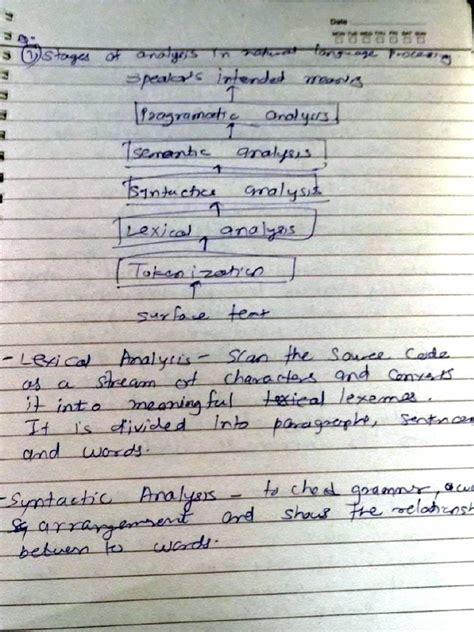 Date
① Stages of analysis in natural language Processing
Speaker's intended meaning
Programatic analysis
Semantic analysis
Syntactice analysis
Lexical analysis
Tokenization
surface text
- Lexical Analysis - Scan the Source Code
as a stream of characters and converts
it into meaningful lexical lexemes.
It is divided into paragraphs, sentences
and words.
- Syntactic Analysis - to check grammer,
arrangement and shows the relationsh
between to words.